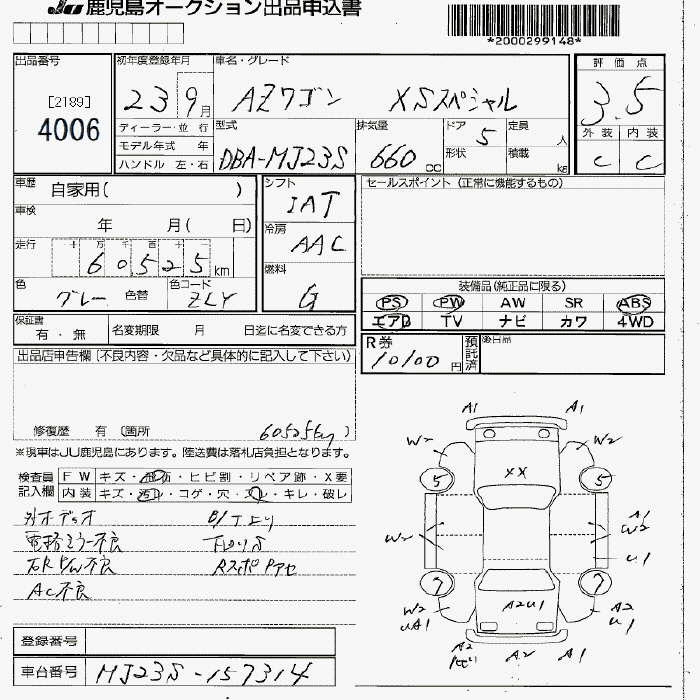 JU 鹿児島オークション出品申込書
*2000299148*
出品番号
[2189]
4006
初年度登録年月
23 9月
ディーラー・並行
モデル年式 年
ハンドル 左・右
車名・グレード
AZワゴン XSスペシャル
型式
DBA-MJ23S
排気量
660 CC
ドア 5
形状
定員 人
積載 kg
評価点
3.5
外装 内装
C C
車歴 自家用( )
車検 年 月( 日)
走行 十 万 千 百 十 一
60525 km
色 グレー 色替
色コード ZLY
シフト
IAT
冷房
AAC
燃料
G
セールスポイント (正常に機能するもの)
装備品(純正品に限る)
PS PW AW SR ABS
エアB TV ナビ カワ 4WD
保証書 有・無
名変期限 月 日迄に名変できる方
R券 10100 円
預託済
後日品
出品店申告欄 (不良内容・欠品など具体的に記入して下さい)
修復歴 有 (箇所 60525km )
※現車はJU鹿児島にあります。陸送費は落札店負担となります。
検査員記入欄
FW キズ・ ・ヒビ割・リペア跡・X要
内装 キズ・汚れ・コゲ・穴・ ・キレ・破レ
外オーディオ
電格ミラー不良
右R P/W不良
AC不良
A1 A1
W2 W2
5 5
XX
W2
A1
W2
U1
7 7
W2
UA1
A2U1
A2
U1
A2
A2 A1
登録番号
車台番号 MJ23S-157314